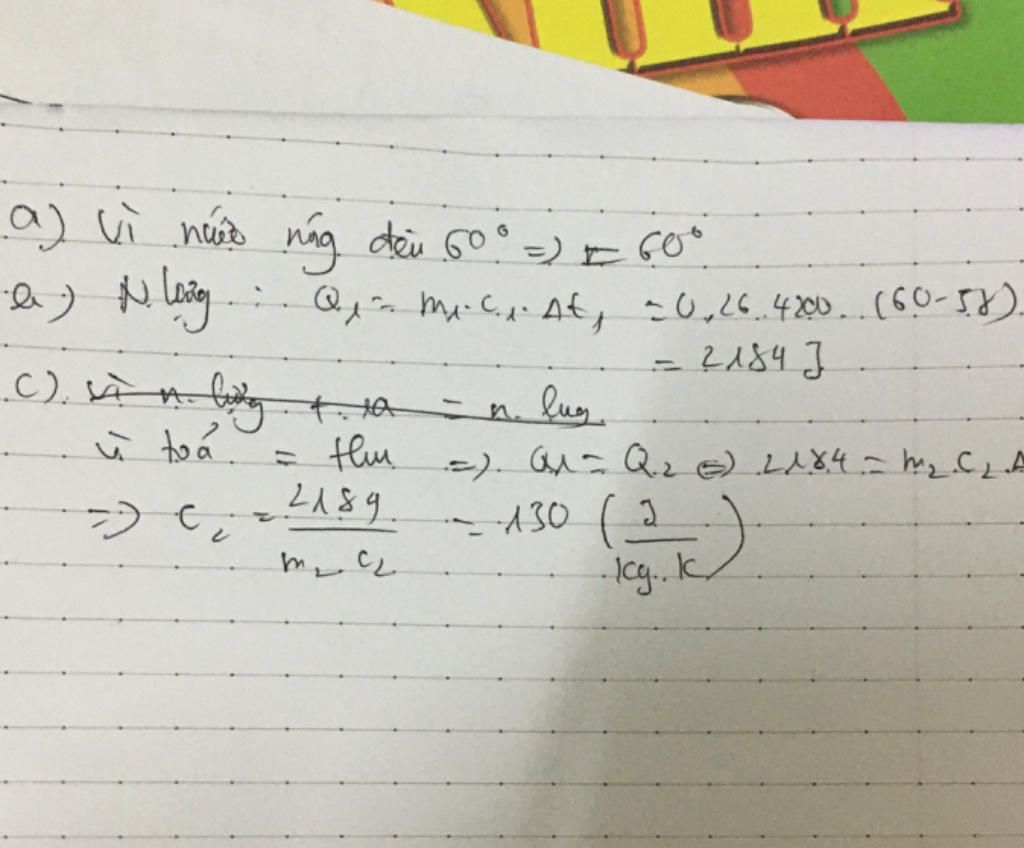 a) Vì nước nóng đến 60° => t = 60°
b) N.lượng : Q₁ = m₁.c₁.Δt₁ = 0,26.4200.(60-58)
= 2184 J
c) vì n. lượng t. ra = n. lượng
vì toả = thu => Q1 = Q₂ <=> 2184 = m₂ c₂.Δ
=> c₂ = 2184 / m₂ c₂ = 130 (J / kg.K)